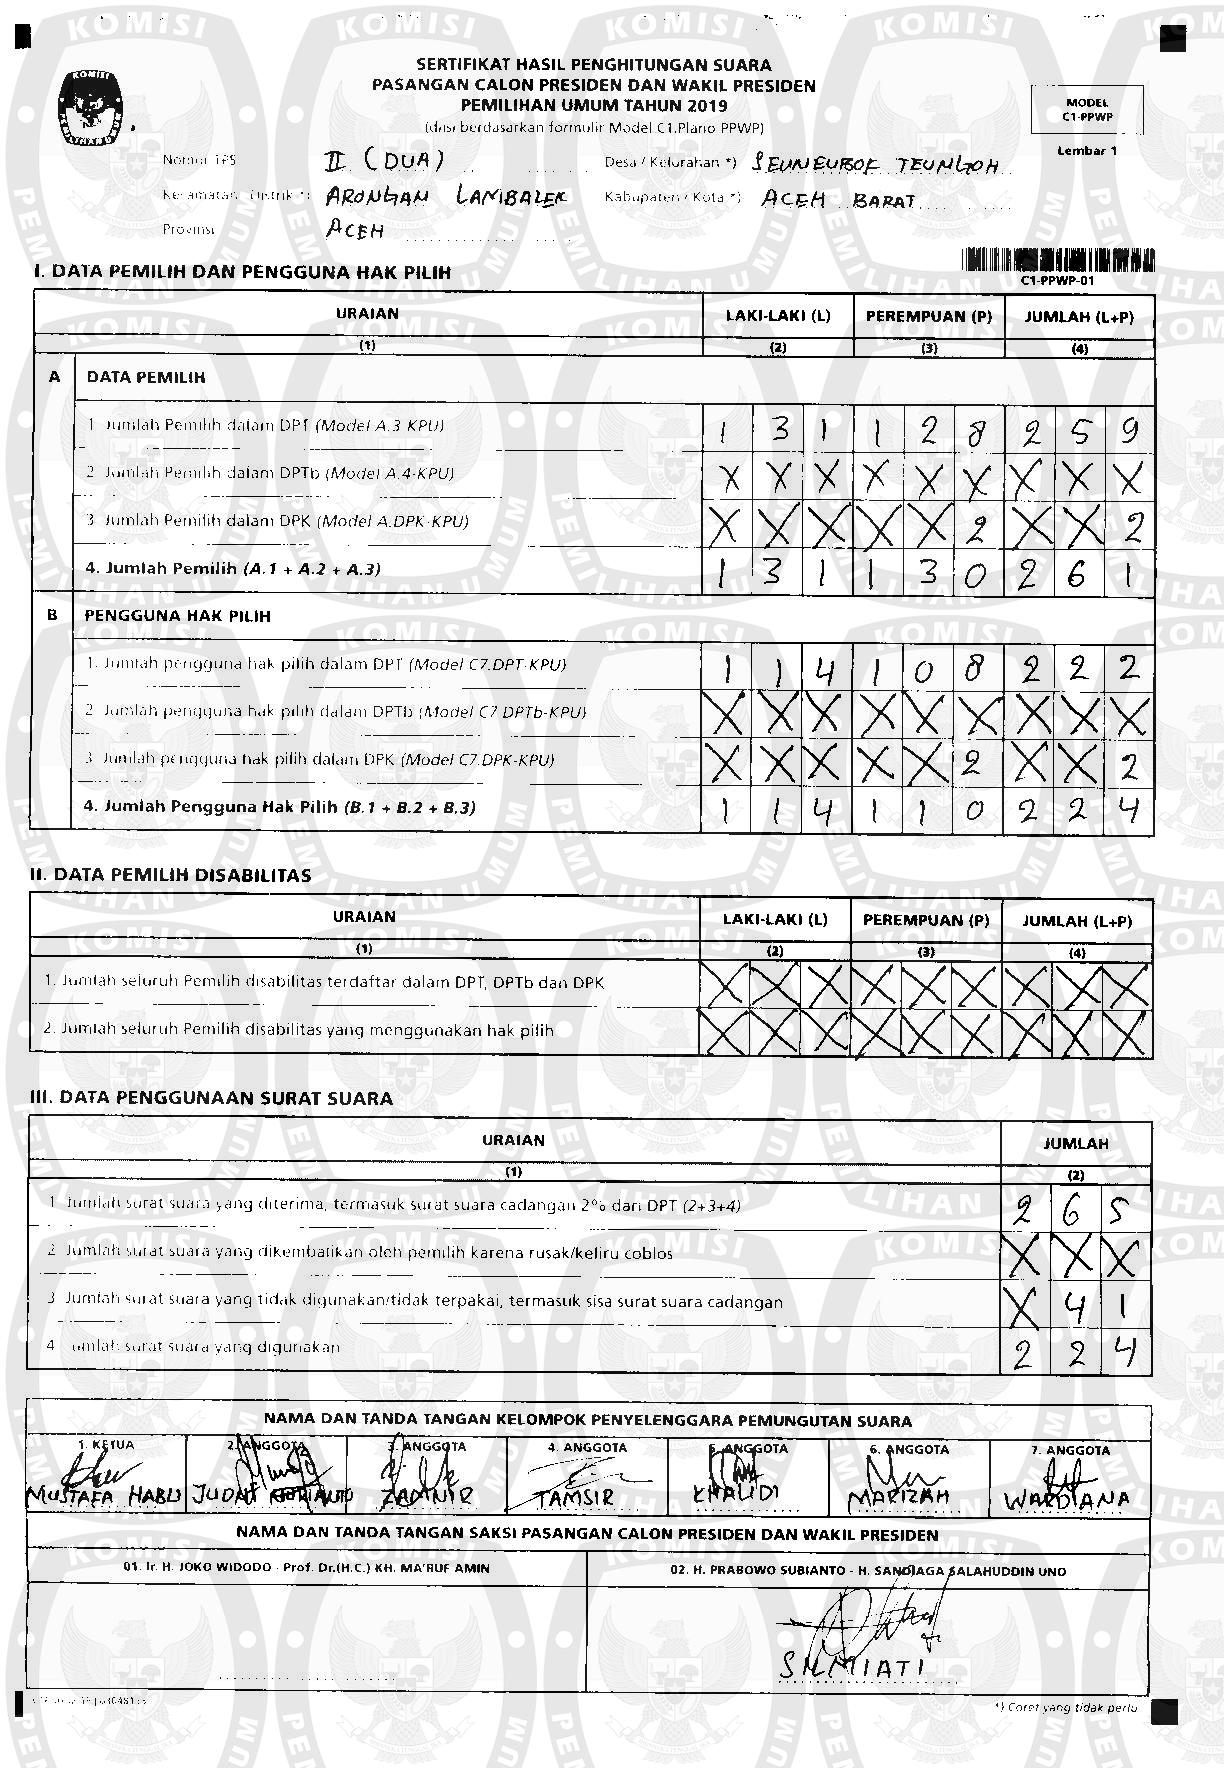 SERTIFIKAT HASIL PENGHITUNGAN SUARA
PASANGAN CALON PRESIDEN DAN WAKIL PRESIDEN
PEMILIHAN UMUM TAHUN 2019
(diisi berdasarkan formulir Model C1.Plano PPWP)
MODEL
C1-PPWP
Lembar 1
Nomor TPS II (DUA) Desa / Kelurahan *) SEUNEUBOK TEUNGOH
Kecamatan / Distrik *) ARONGAN LAMBALEK Kabupaten / Kota *) ACEH BARAT
Provinsi ACEH
I. DATA PEMILIH DAN PENGGUNA HAK PILIH
C1-PPWP-01
URAIAN LAKI-LAKI (L) PEREMPUAN (P) JUMLAH (L+P)
(1) (2) (3) (4)
A DATA PEMILIH
1. Jumlah Pemilih dalam DPT (Model A.3 KPU) 1 3 1 1 2 8 2 5 9
2. Jumlah Pemilih dalam DPTb (Model A.4-KPU) X X X X X X X X X
3. Jumlah Pemilih dalam DPK (Model A.DPK-KPU) X X X X X 2 X X 2
4. Jumlah Pemilih (A.1 + A.2 + A.3) 1 3 1 1 3 0 2 6 1
B PENGGUNA HAK PILIH
1. Jumlah pengguna hak pilih dalam DPT (Model C7.DPT-KPU) 1 1 4 1 0 8 2 2 2
2. Jumlah pengguna hak pilih dalam DPTb (Model C7.DPTb-KPU) X X X X X X X X X
3. Jumlah pengguna hak pilih dalam DPK (Model C7.DPK-KPU) X X X X X 2 X X 2
4. Jumlah Pengguna Hak Pilih (B.1 + B.2 + B.3) 1 1 4 1 1 0 2 2 4
II. DATA PEMILIH DISABILITAS
URAIAN LAKI-LAKI (L) PEREMPUAN (P) JUMLAH (L+P)
(1) (2) (3) (4)
1. Jumlah seluruh Pemilih disabilitas terdaftar dalam DPT, DPTb dan DPK X X X X X X X X X
2. Jumlah seluruh Pemilih disabilitas yang menggunakan hak pilih X X X X X X X X X
III. DATA PENGGUNAAN SURAT SUARA
URAIAN JUMLAH
(1) (2)
1. Jumlah surat suara yang diterima, termasuk surat suara cadangan 2% dari DPT (2+3+4) 2 6 5
2. Jumlah surat suara yang dikembalikan oleh pemilih karena rusak/keliru coblos X X X
3. Jumlah surat suara yang tidak digunakan/tidak terpakai, termasuk sisa surat suara cadangan X 4 1
4. Jumlah surat suara yang digunakan 2 2 4
NAMA DAN TANDA TANGAN KELOMPOK PENYELENGGARA PEMUNGUTAN SUARA
1. KETUA 2. ANGGOTA 3. ANGGOTA 4. ANGGOTA 5. ANGGOTA 6. ANGGOTA 7. ANGGOTA
MUSTAFA HABLI JUDNI ZADINIR TAMSIR KHALIDI MARIZAH WARDIANA
NAMA DAN TANDA TANGAN SAKSI PASANGAN CALON PRESIDEN DAN WAKIL PRESIDEN
01. Ir. H. JOKO WIDODO - Prof. Dr.(H.C.) KH. MA'RUF AMIN 02. H. PRABOWO SUBIANTO - H. SANDIAGA SALAHUDDIN UNO
*) Coret yang tidak perlu